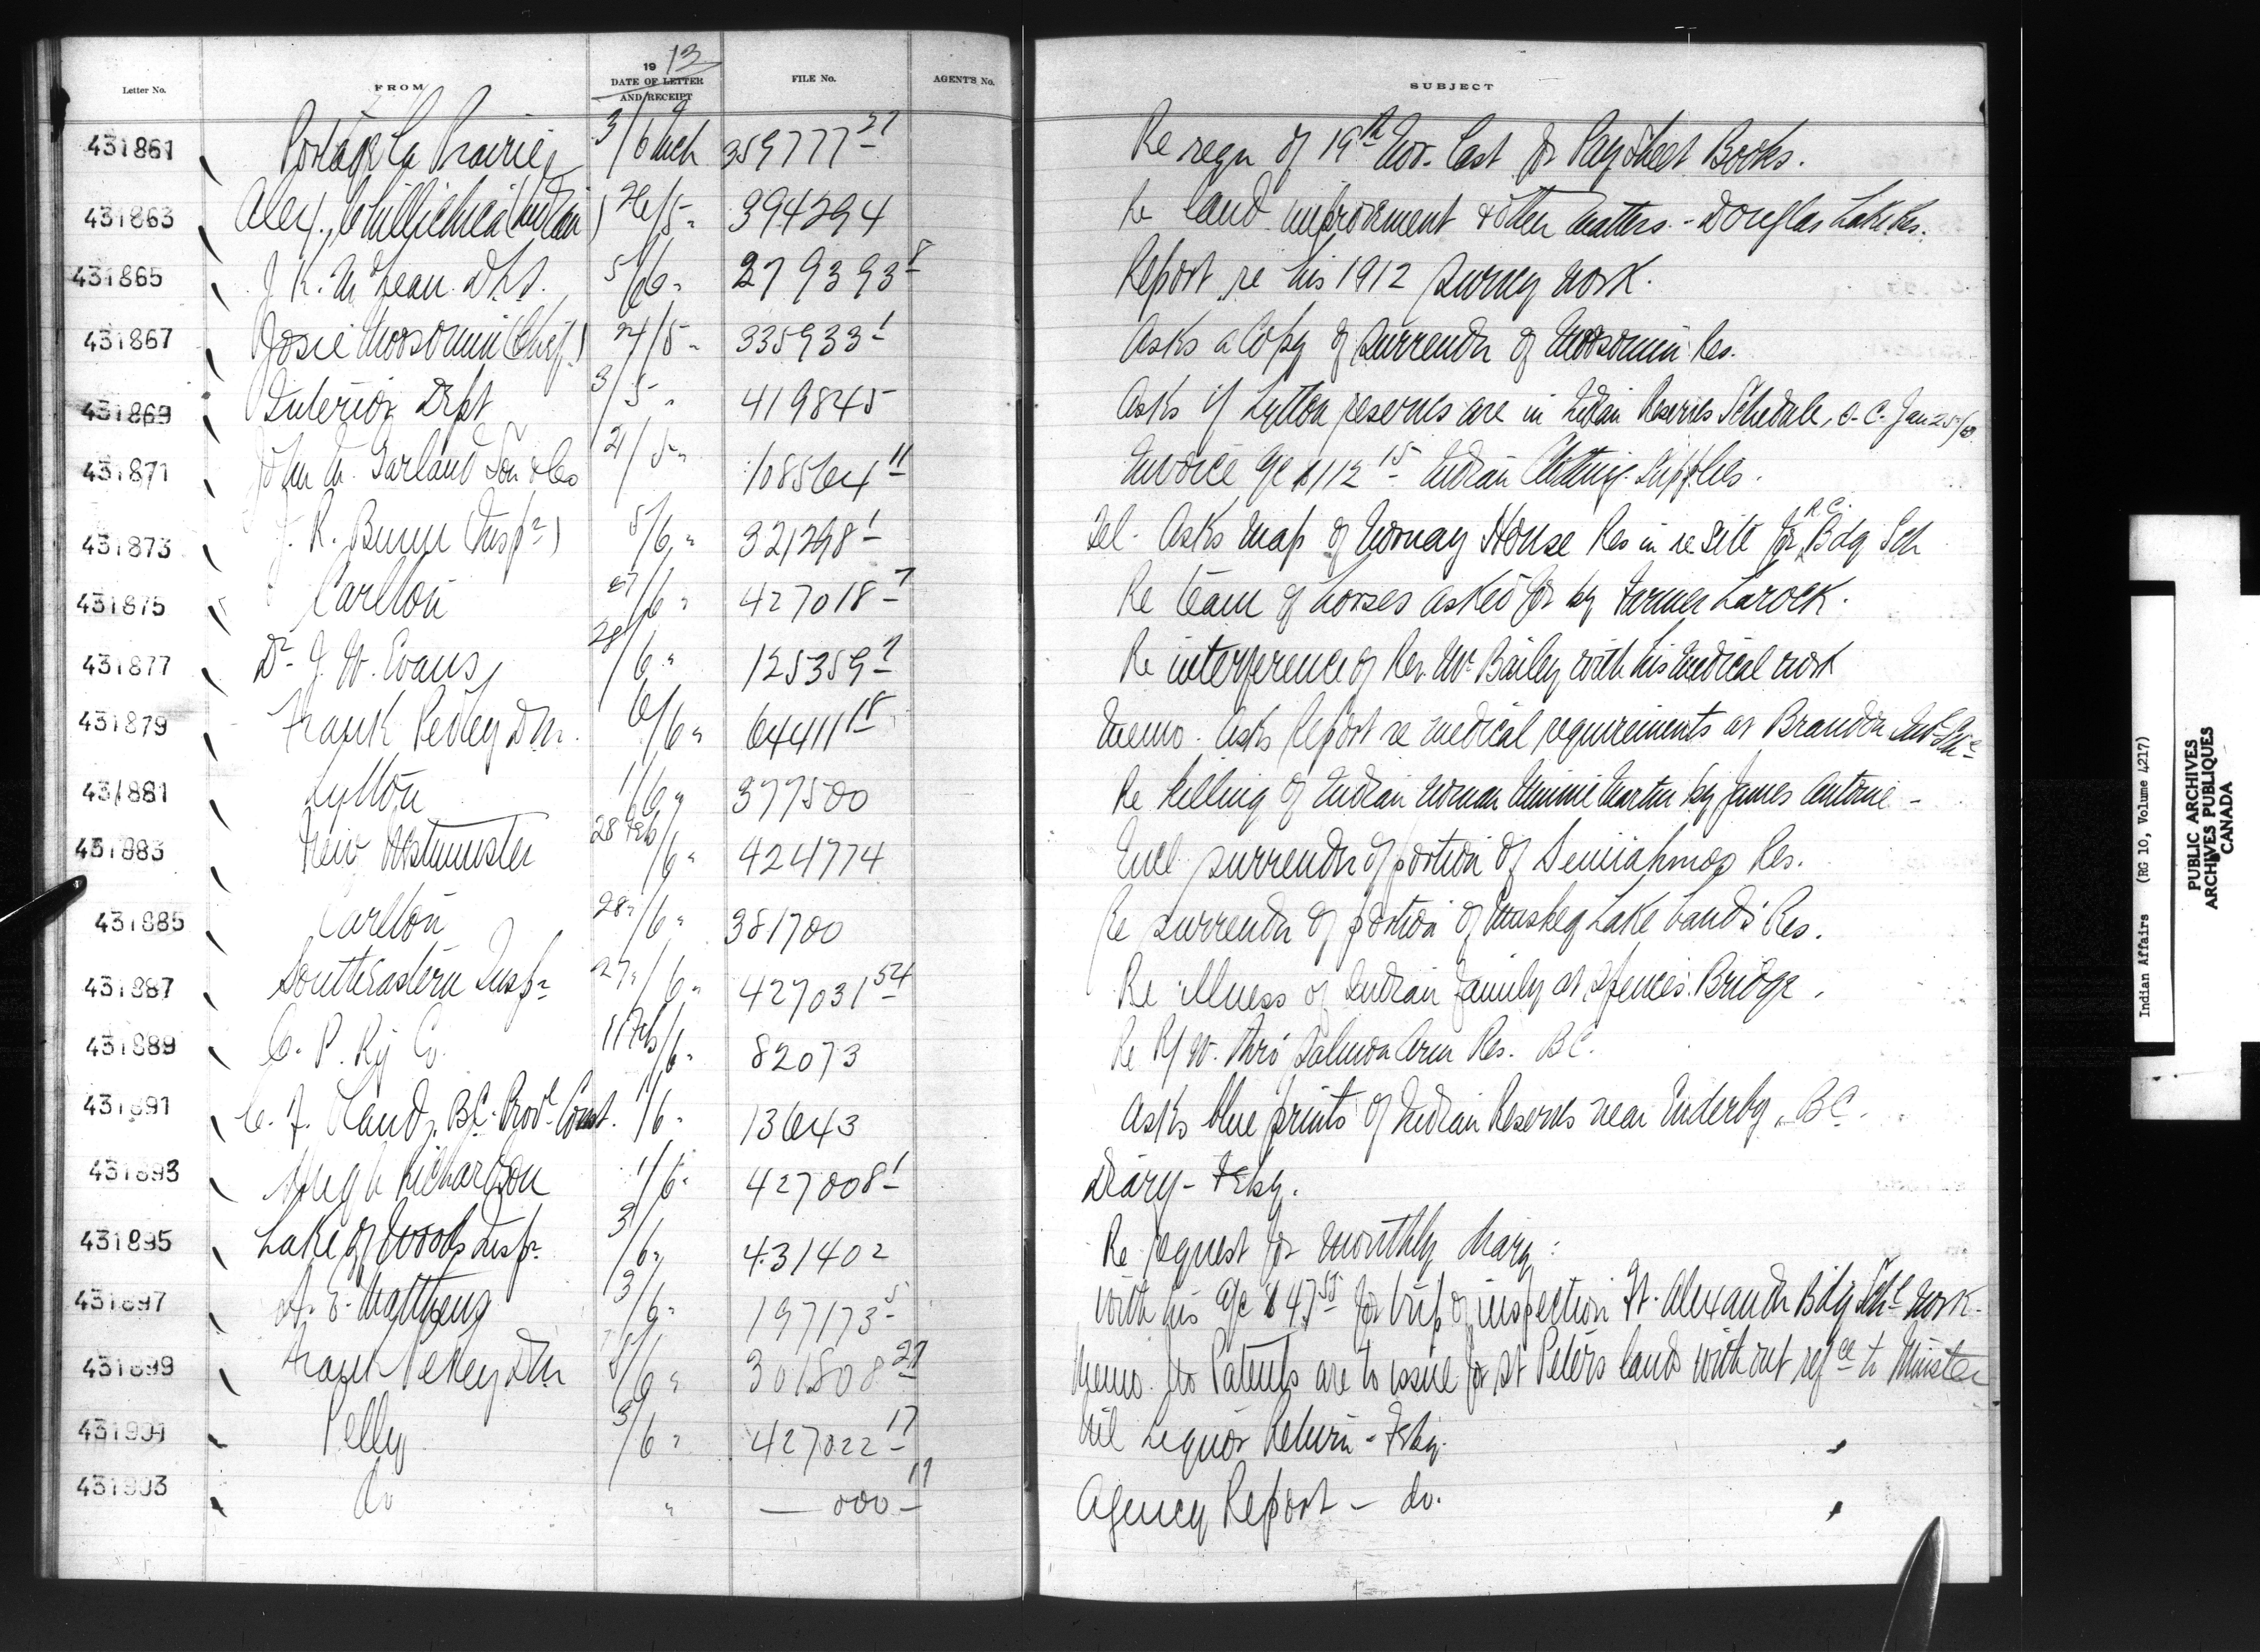 19 13
Letter No. FROM DATE OF LETTER AND RECEIPT FILE No. AGENT'S No. SUBJECT
431861 Portage La Prairie 3/6 Mch 359777 27 Re reqn of 19th Nov. last for Pay Sheet Books.
431863 Alex. Chillihitzia (Indian) 26/5 " 394294 Re land improvement & other matters - Douglas Lake Res.
431865 J. K. McLean D.L.S. 5/6 " 279393 8 Report re his 1912 survey work.
431867 Josie Moosomin (Chief) 24/5 " 335933 1 Asks a Copy of surrender of Moosomin Res.
431869 Interior Dept 3/5 " 419845 Asks if Lytton reserves are in Indian Reserves Schedule, O.C. Jan
431871 John M. Garland Son & Co 21/5 " 108564 11 Invoice a/c $112 15 Indian Clothing Supplies.
431873 J. R. Bunn (Inspr) 5/6 " 321298 1 Tel. Asks map of Norway House Res in re site for R.C. Bdg Sch
431875 Carlton 27/6 " 427018 7 Re team of horses asked for by Farmer Larock.
431877 Dr J. W. Evans 28/6 " 125359 Re interference of Rev. Mr Bailey with his medical work
431879 Frank Pedley D.M. 6/6 " 64411 18 Memo. Asks Report re medical requirements at Brandon Ind Sch
431881 Lytton 1/6 " 377500 Re killing of Indian woman Minnie Martin by James Antoine -
431883 New Westminster 28 Feb/6 " 424774 Encl surrender of portion of Semiahmoo Res.
431885 Carlton 28 "/6 " 381700 Re surrender of portion of Muskeg Lake band's Res.
431887 South Eastern Inspr 27 "/6 " 427031 54 Re illness of Indian family at Spences Bridge.
431889 C. P. Ry Co. 11 Feb/6 " 82073 Re R/W. thro' Salmon Arm Res. BC.
431891 C. F. BC. Provl Const. 1/6 " 13643 Asks blue prints of Indian Reserves near Enderby, BC.
431893 Hugh Richardson 1/6 " 427008 1 Diary - Feby.
431895 Lake of Woods Inspr 3/6 " 431402 Re request for monthly diary:
431897 A. E. Matthews 3/6 " 197173 5 With his a/c $47 55 for trip of inspection Ft. Alexander Bdg Schl work.
431899 Frank Pedley DM 5/6 " 301808 27 Memo. No Patents are to issue for St Peters lands without refce to Minister
431901 Pelly 3/6 " 427022 17 Nil Liquor Return - Feby. "
431903 do " — 000 — 11 Agency Report - do. "
Indian Affairs (RG 10, Volume 4217)
PUBLIC ARCHIVES
ARCHIVES PUBLIQUES
CANADA